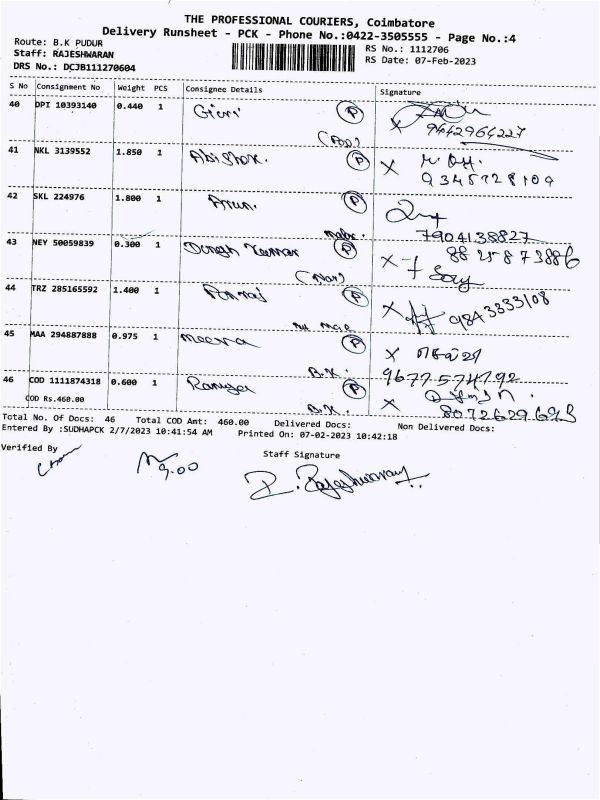 THE PROFESSIONAL COURIERS, Coimbatore
Delivery Runsheet - PCK - Phone No.:0422-3505555 - Page No.:4
Route: B.K PUDUR
RS No.: 1112706
Staff: RAJESHWARAN
RS Date: 07-Feb-2023
DRS No.: DCJB111270604
S No Consignment No Weight PCS Consignee Details Signature
40 DPI 10393140 0.440 1 Giori P
9442964227
41 NKL 3139552 1.850 1 Abishek. P X
9345728109
42 SKL 224976 1.800 1 Arun. P
7904138827
43 NEY 50059839 0.300 1 Dinesh Kumar P X 8825873886
44 TRZ 285165592 1.400 1 Ponraj P X 9843333108
45 MAA 294887888 0.975 1 meera P X
B.K. 9677574792
46 COD 1111874318 0.600 1 Ramya P X
COD Rs.460.00 B.K. 8072629693
Total No. Of Docs: 46 Total COD Amt: 460.00 Delivered Docs: Non Delivered Docs:
Entered By :SUDHAPCK 2/7/2023 10:41:54 AM Printed On: 07-02-2023 10:42:18
Verified By Staff Signature
9.00 R. Rajeshwaran